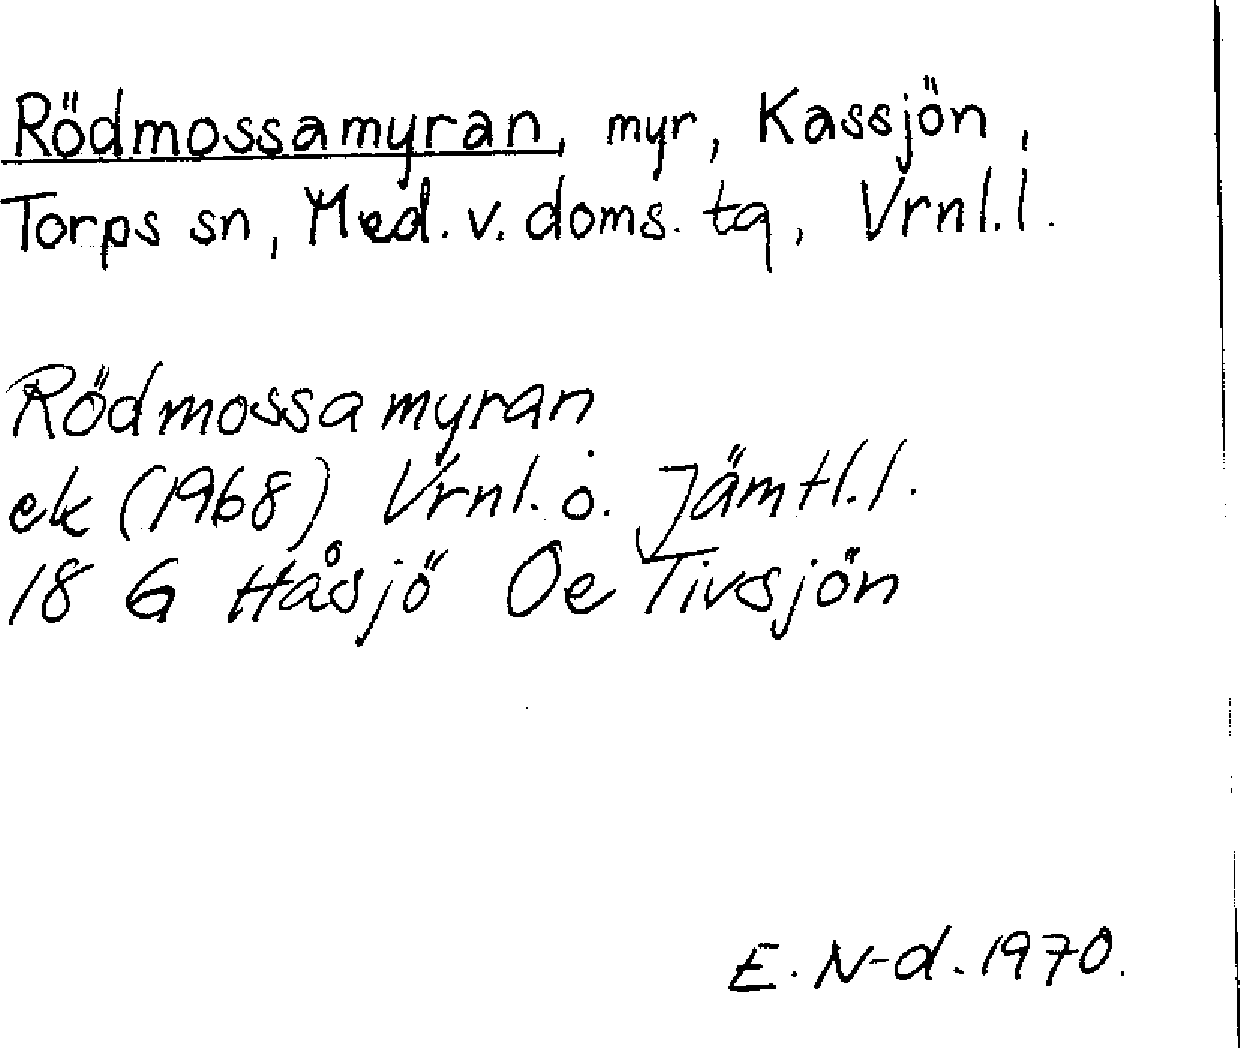 Rödmossamyran, myr, Kassjön,
Torps sn, Med. v. doms. tq, Vrnl.l.
Rödmossamyran
ek (1968) Vrnl. o. Jämtl.l.
18 G Håsjö Öe Tivsjön
E. N-d. 1970.